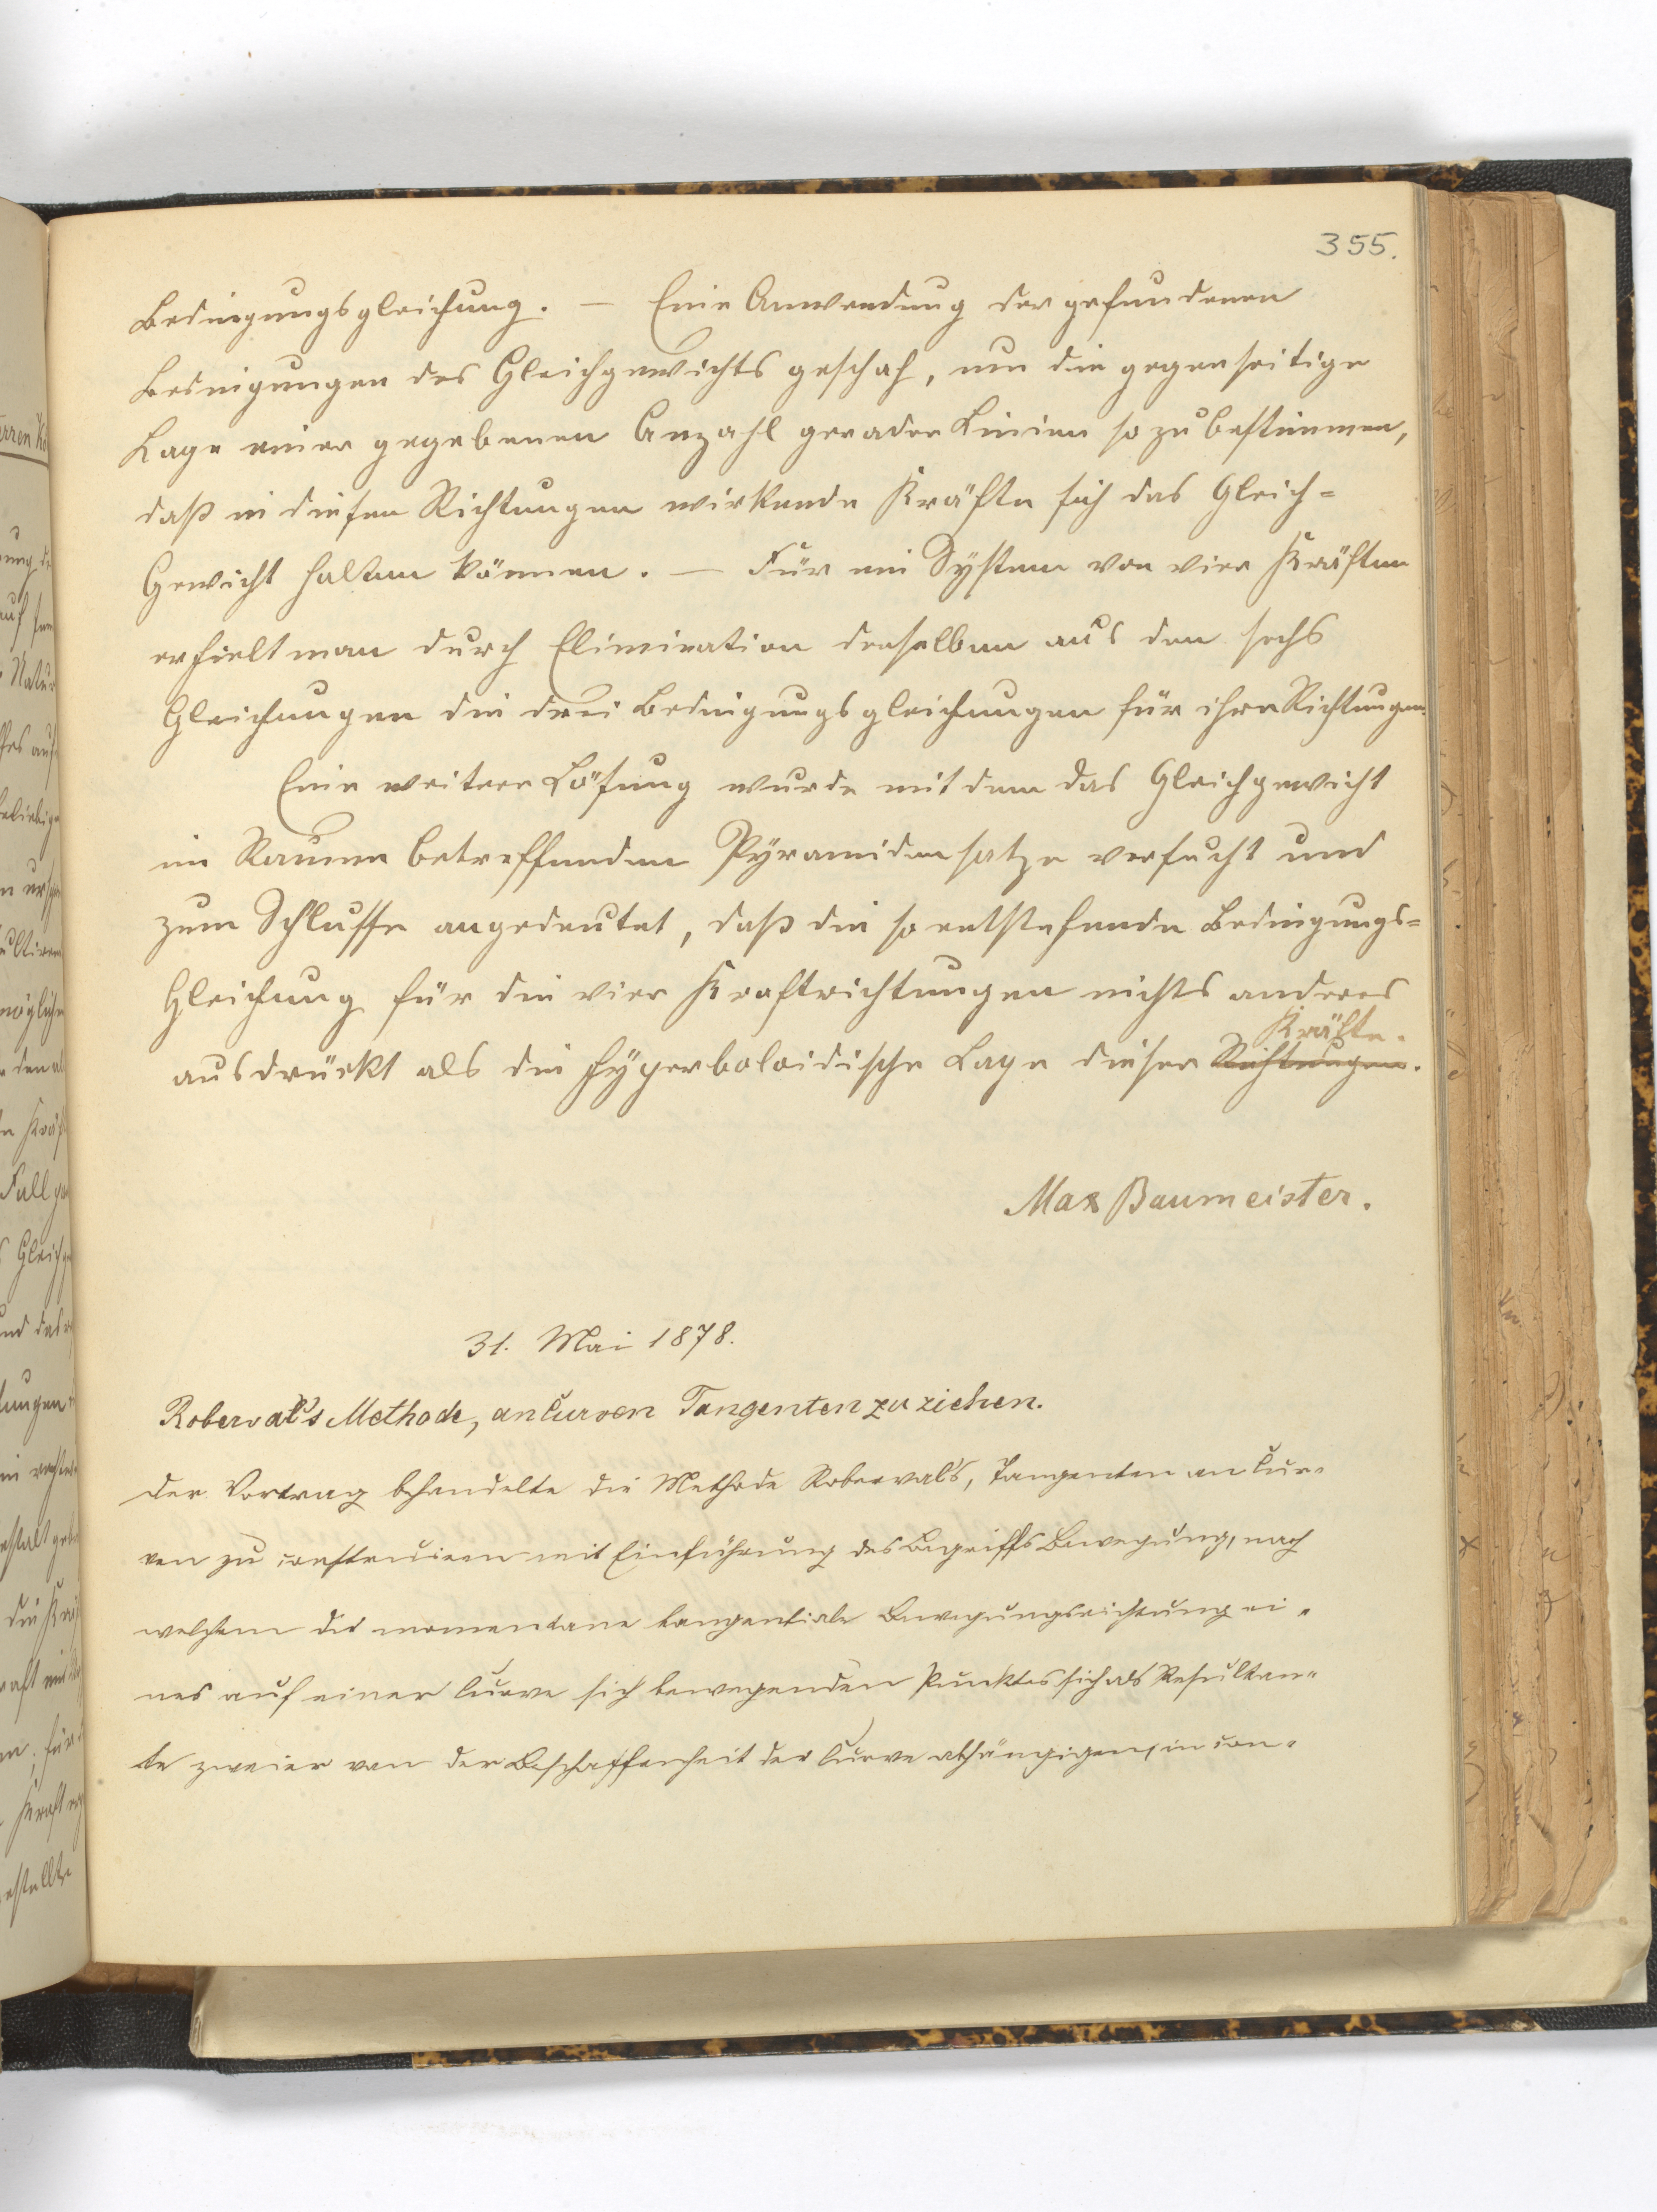 355.
Bedingungsgleichung. — Eine Anwendung der gefundenen
Bedingungen des Gleichgewichts geschah, um die gegenseitige
Lage einer gegebenen Anzahl gerader Linien so zu bestimmen,
daß in diesen Richtungen wirkende Kräfte sich das Gleich=
Gewicht halten können. — Für ein System von vier Kräften
erhielt man durch Elimination derselben aus den sechs
Gleichungen die drei Bedingungsgleichungen für ihre Richtungen.
Eine weitere Lösung wurde mit dem das Gleichgewicht
im Raume betreffenden Pyramidensatze versucht und
zum Schlusse angedeutet, daß die so entstehende Bedingungs=
Gleichung für die vier Kraftrichtungen nichts anderes
Kräfte.
ausdrückt als die hyperboloidische Lage dieser Richtungen.
Max Baumeister.
31. Mai 1878.
Roberval's Methode, an Curven Tangenten zu ziehen.
Der Vortrag behandelte die Methode Robervals, Tangenten an Cur=
ven zu construiren mit Einführung des Begriffs Bewegung, nach
welchem die momentane tangentiale Bewegungsrichtung ei=
nes auf einer Curve sich bewegenden Punktes sich als Resultan=
te zweier von der Beschaffenheit der Curve abhängigen, in con=